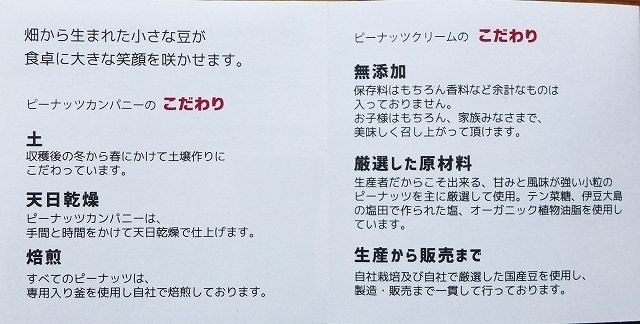 畑から生まれた小さな豆が
食卓に大きな笑顔を咲かせます。
ピーナッツカンパニーの こだわり
土
収穫後の冬から春にかけて土壌作りに
こだわっています。
天日乾燥
ピーナッツカンパニーは、
手間と時間をかけて天日乾燥で仕上げます。
焙煎
すべてのピーナッツは、
専用入り釜を使用し自社で焙煎しております。
ピーナッツクリームの こだわり
無添加
保存料はもちろん香料など余計なものは
入っておりません。
お子様はもちろん、家族みなさまで、
美味しく召し上がって頂けます。
厳選した原材料
生産者だからこそ出来る、甘みと風味が強い小粒の
ピーナッツを主に厳選して使用。テン菜糖、伊豆大島
の塩田で作られた塩、オーガニック植物油脂を使用し
ています。
生産から販売まで
自社栽培及び自社で厳選した国産豆を使用し、
製造・販売まで一貫して行っております。